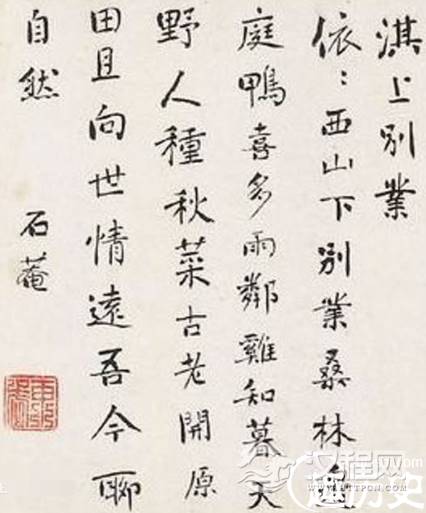 淇上別業
依〻西山下別業桑林邊
庭鴨喜多雨鄰雞知暮天
野人種秋菜古老開原
田且向世情遠吾今聊
自然
石菴
汉程网
历史